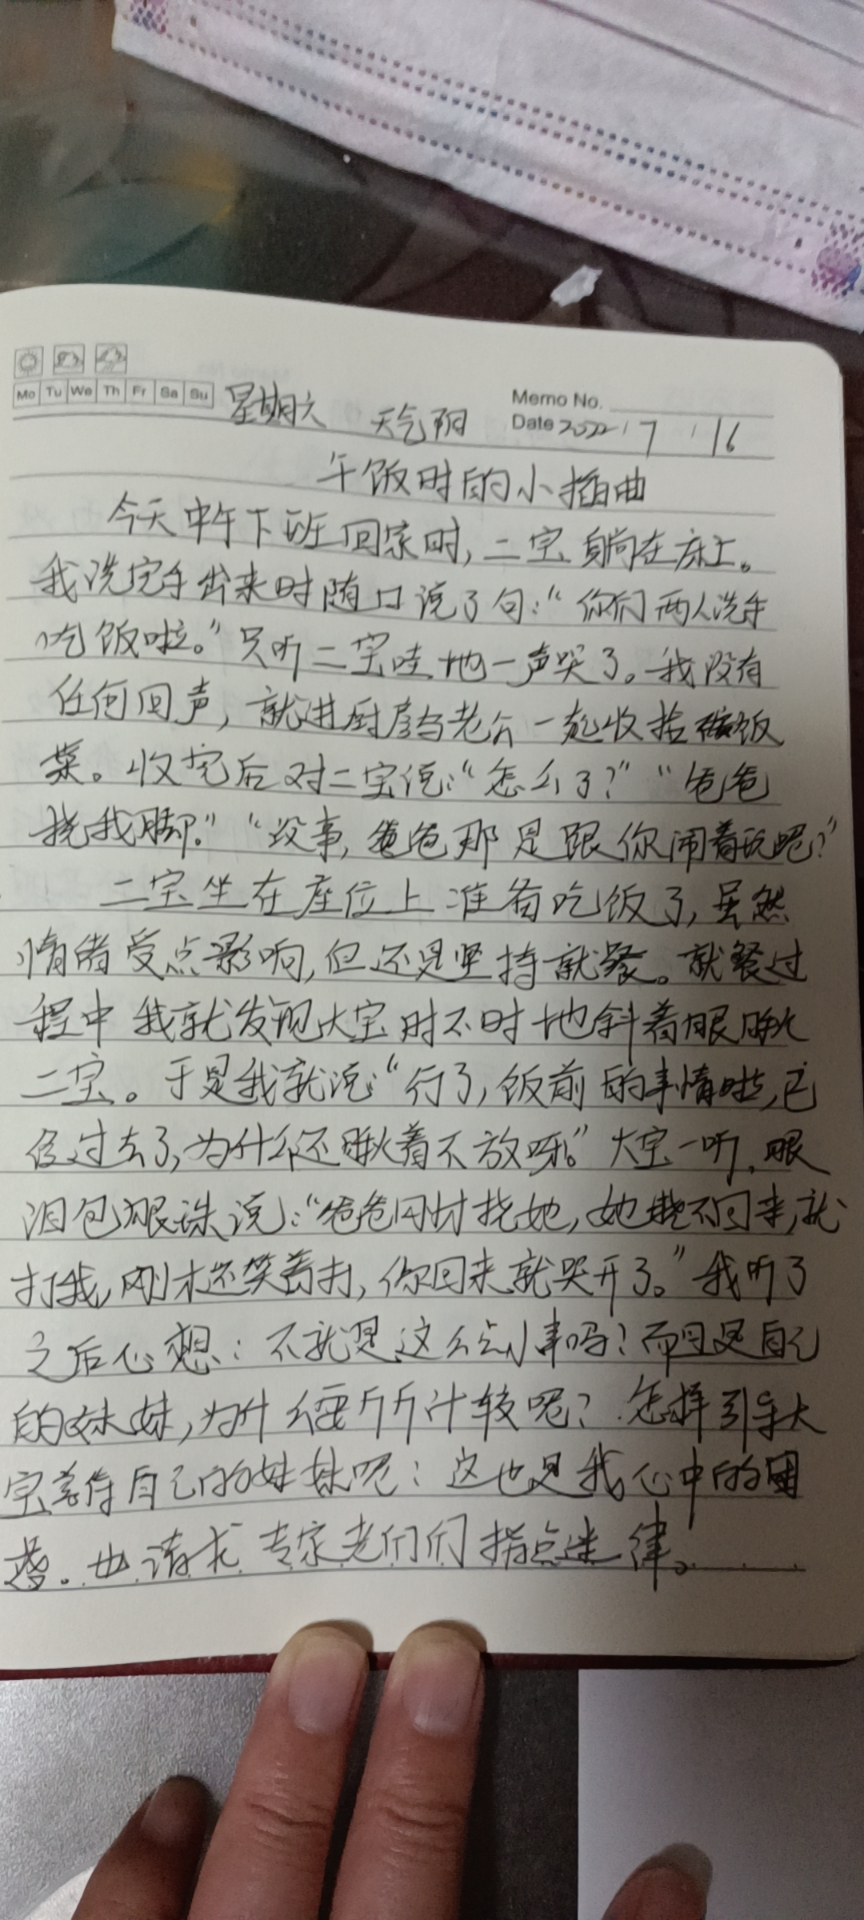 Mo Tu We Th Fr Sa Su 星期六 天气阴 Memo No.
Date 2022 7 16
午饭时的小插曲
今天中午下班回家时,二宝躺在床上。
我洗完手出来时随口说了句:“你们两人洗手
吃饭啦。”只听二宝哇地一声哭了。我没有
任何回声,就进厨房与老公一起收拾饭
菜。收完后对二宝说:“怎么了?”“爸爸
挠我脚。”“没事,爸爸那是跟你闹着玩呢?”
二宝坐在座位上准备吃饭了,虽然
情绪受点影响,但还是坚持就餐。就餐过
程中我就发现大宝时不时地斜着眼瞅
二宝。于是我就说:“行了,饭前的事情啦,已
经过去了,为什么还瞅着不放呀。”大宝一听,眼
泪包眼珠说:“爸爸同时挠她,她挠不回来,就
打我,刚才还笑着打,你回来就哭开了。”我听了
之后心想:不就是这么点小事吗?而且是自己
的妹妹,为什么要斤斤计较呢?怎样引导大
宝善待自己的妹妹呢:这也是我心中的困
惑。也请求专家老师们指点迷律。